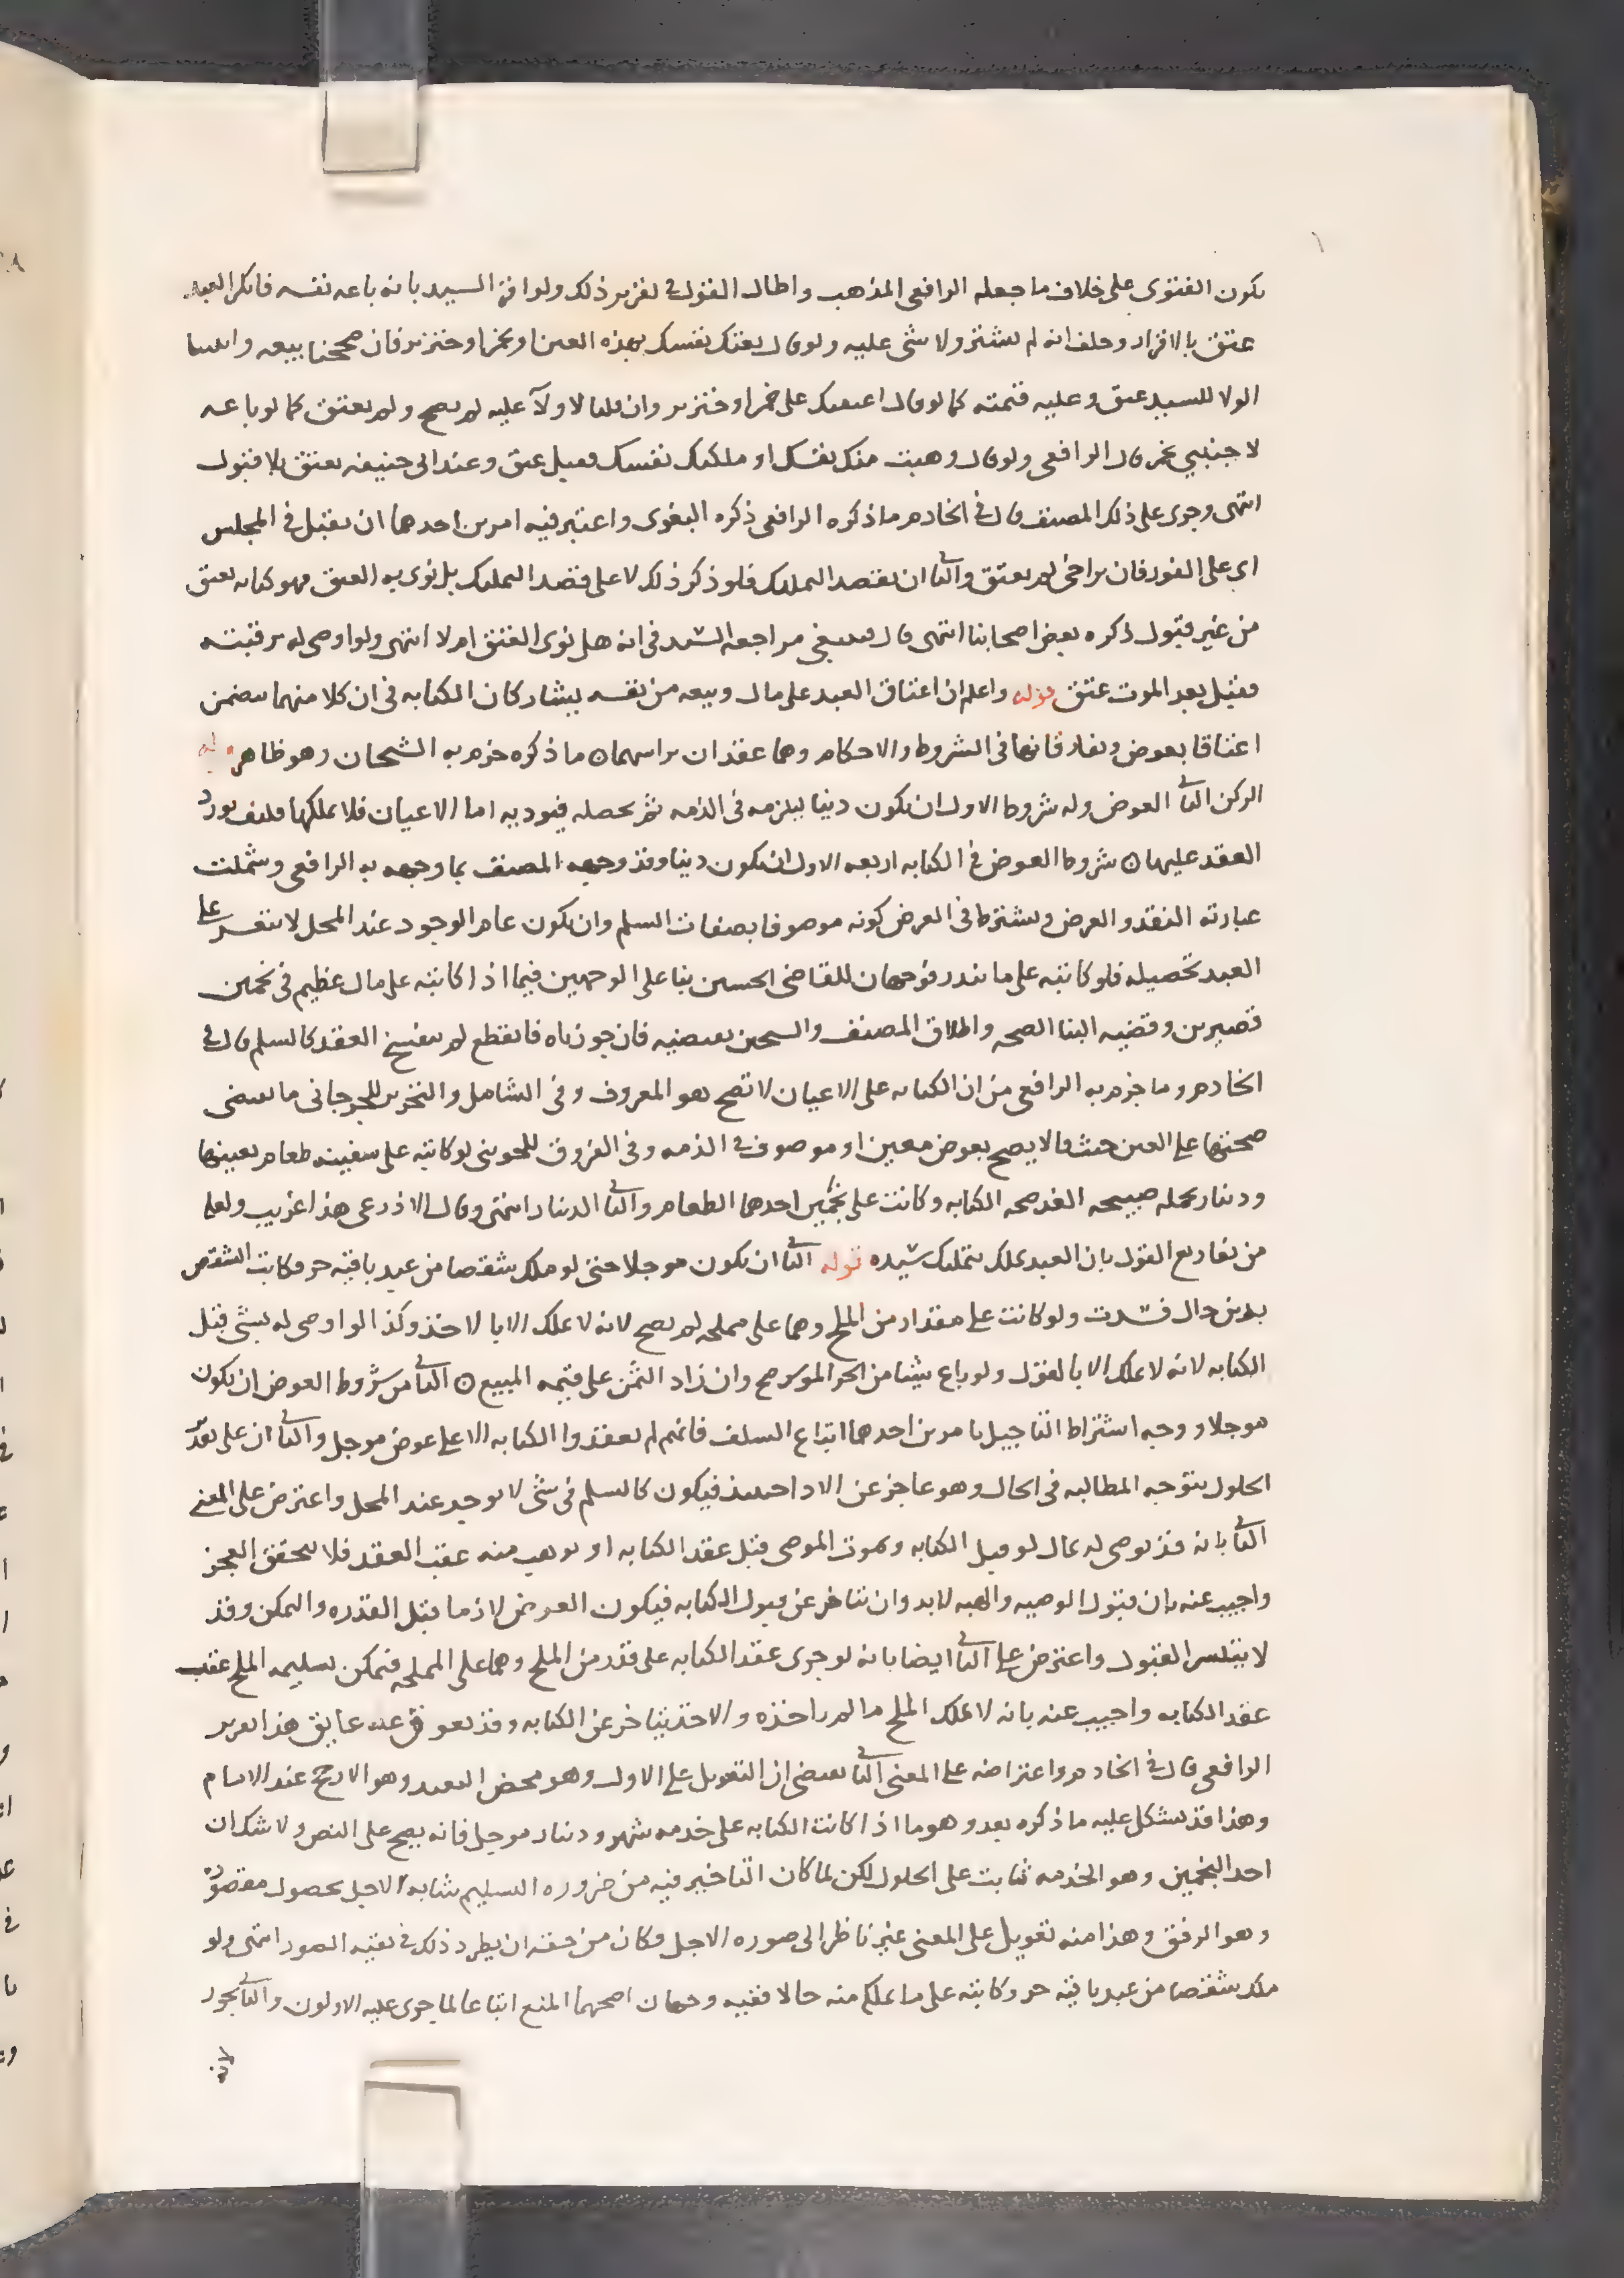 يكون الفتوى على خلاف ما جعله الرافعى المذهب واطال القول فى تقرير ذلك ولو اقر السيد بانه باعه نفسه فانكر العبد
عتق بالاقرار وحلف انه لم يشتر ولا شى عليه ولو قال بعتك نفسك بهذه العين او بخمر او خنزير فان صححنا بيعه واثبتنا
الولا للسيد عتق وعليه قيمته كما لو قال اعتقتك على خمر او خنزير وان قلنا لا ولآ عليه لم يصح ولم يعتق كما لو باعه
لاجنبي بخمر قال الرافعى ولو قال وهبت منك نفسك او ملكتك نفسك فقبل عتق وعند ابى حنيفه يعتق بلا قبول
انتهى وجرى على ذلك المصنف قال فى الخادم ما ذكره الرافعى ذكره البغوى واعتبر فيه امرين احدهما ان يقبل فى المجلس
اى على الفور فان تراخى لم يعتق والثانى ان يقصد التمليك فلو ذكر ذلك لا على قصد التمليك بل نوى به العتق فهو كنايه يعتق
من غير قبول ذكره بعض اصحابنا انتهى قال فينبغى مراجعه السيد فى انه هل نوى العتق ام لا انتهى ولو اوصى له برقبته
فقبل بعد الموت عتق قوله واعلم ان اعتاق العبد على مال وبيعه من نفسه يشاركان الكتابه فى ان كلا منهما يتضمن
اعتاقا بعوض ويفارقانها فى الشروط والاحكام وهما عقدان براسهما ن ما ذكره جزم به الشيخان وهو ظاهر
الركن الثانى العوض وله شروط الاول ان يكون دينا يلزمه فى الذمه ثم يحصله فيوديه اما الاعيان فلا يملكها فكيف يورد
العقد عليها ن شروط العوض فى الكتابه اربعه الاول ان يكون دينا وقد وجهه المصنف بما وجهه به الرافعى وشملت
عبارته النقد والعرض ويشترط فى العرض كونه موصوفا بصفات السلم وان يكون عام الوجود عند المحل لا يتعسر على
العبد تحصيله فلو كاتبه على ما يندر فوجهان للقاضى الحسين بنا على الوجهين فيما اذا كاتبه على مال عظيم فى نجمين
قصيرين وقضيه البنا الصحه واطلاق المصنف والشيخين يقتضيه فان جوزناه فانقطع لم ينفسخ العقد كالسلم قال فى
الخادم وما جزم به الرافعى من ان الكتابه على الاعيان لا تصح هو المعروف وفى الشامل والتحرير للجرجانى ما يقتضى
صحتها على العين حيث قالا يصح بعوض معين او موصوف فى الذمه وفى الفروق للجوينى لو كاتبه على سفينه طعام بعينها
ودينار محله صبيحه الغد صحه الكتابه وكانت على نجمين احدهما الطعام والثانى الدينار انتهى وقال الاذرعى هذا غريب ولعله
من تفاريع القول بان العبد يملك بتمليك سيده قوله الثانى ان يكون موجلا حتى لو ملك شقصا من عبد باقيه حر فكاتب الشقص
بدين حال فسدت ولو كانت على مقدار من الملح وهما على مملحه لم يصح لانه لا يملك الا بالاخذ وكذا لو اوصى له بشى قبل
الكتابه لانه لا يملك الا بالقول ولو باع شيئا من الحر الموسر صح وان زاد الثمن على قيمه المبيع ن الثانى من شروط العوض ان يكون
موجلا ووجه اشتراط التاجيل بامرين احدهما اتباع السلف فانهم لم يعقدوا الكتابه الا على عوض موجل والثانى ان على تقدير
الحلول يتوجه المطالبه فى الحال وهو عاجز عن الادا حينيذ فيكون كالسلم فى شى لا يوجد عند المحل واعترض على المعنى
الثانى بانه قد يوصى له بمال لو قبل الكتابه ويموت الموصى قبل عقد الكتابه او يوهب منه عقب العقد فلا يتحقق العجز
واجيب عنه بان قبول الوصيه والهبه لا بد وان يتاخر عن قبول الكتابه فيكون العوض لازما قبل القدره والتمكن وقد
لا يتيسر القبول واعترض على الثانى ايضا بانه لو جرى عقد الكتابه على قدر من الملح وهما على المملحه فتمكن تسليمه الملح عقب
عقد الكتابه واجيب عنه بانه لا يملك الملح ما لم ياخذه والاخذ يتاخر عن الكتابه وقد يعوق عنه عايق هذا تقرير
الرافعى قال فى الخادم واعتراضه على المعنى الثانى يقتضى ان التعويل على الاول وهو محض التعبد وهو الارجح عند الامام
وهذا قد يشكل عليه ما ذكره بعد وهو ما اذا كانت الكتابه على خدمه شهر ودينار موجل فانه يصح على النص ولا شك ان
احد النجمين وهو الخدمه ثابت على الحلول لكن لما كان التاخير فيه من ضروره التسليم شابه الاجل بحصول مقصوده
وهو الرفق وهذا منه تعويل على المعنى غير ناظر الى صوره الاجل فكان من حقه ان يطرد ذلك فى بقيه الصور انتهى ولو
ملك شقصا من عبد باقيه حر وكاتبه على ما يملكه منه حالا ففيه وجهان اصحهما المنع اتباعا لما جرى عليه الاولون والثانى يجوز
لانه